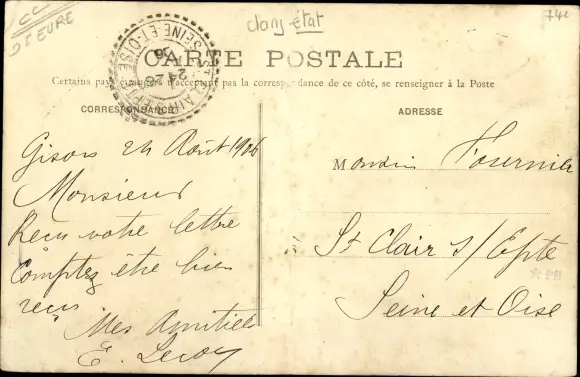 CC
Dt EURE
dans état
CARTE POSTALE
Certains pays étrangers n'acceptant pas la correspondance de ce côté, se renseigner à la Poste
CORRESPONDANCE
ADRESSE
Gisors 24 Août 1906
Monsieur
Reçu votre lettre
Comptez être bien
reçu
Mes Amitiés
E. Leroy
Monsieur Fournier
à St Clair s/ Epte
Seine et Oise
SEINE-ET-OISE